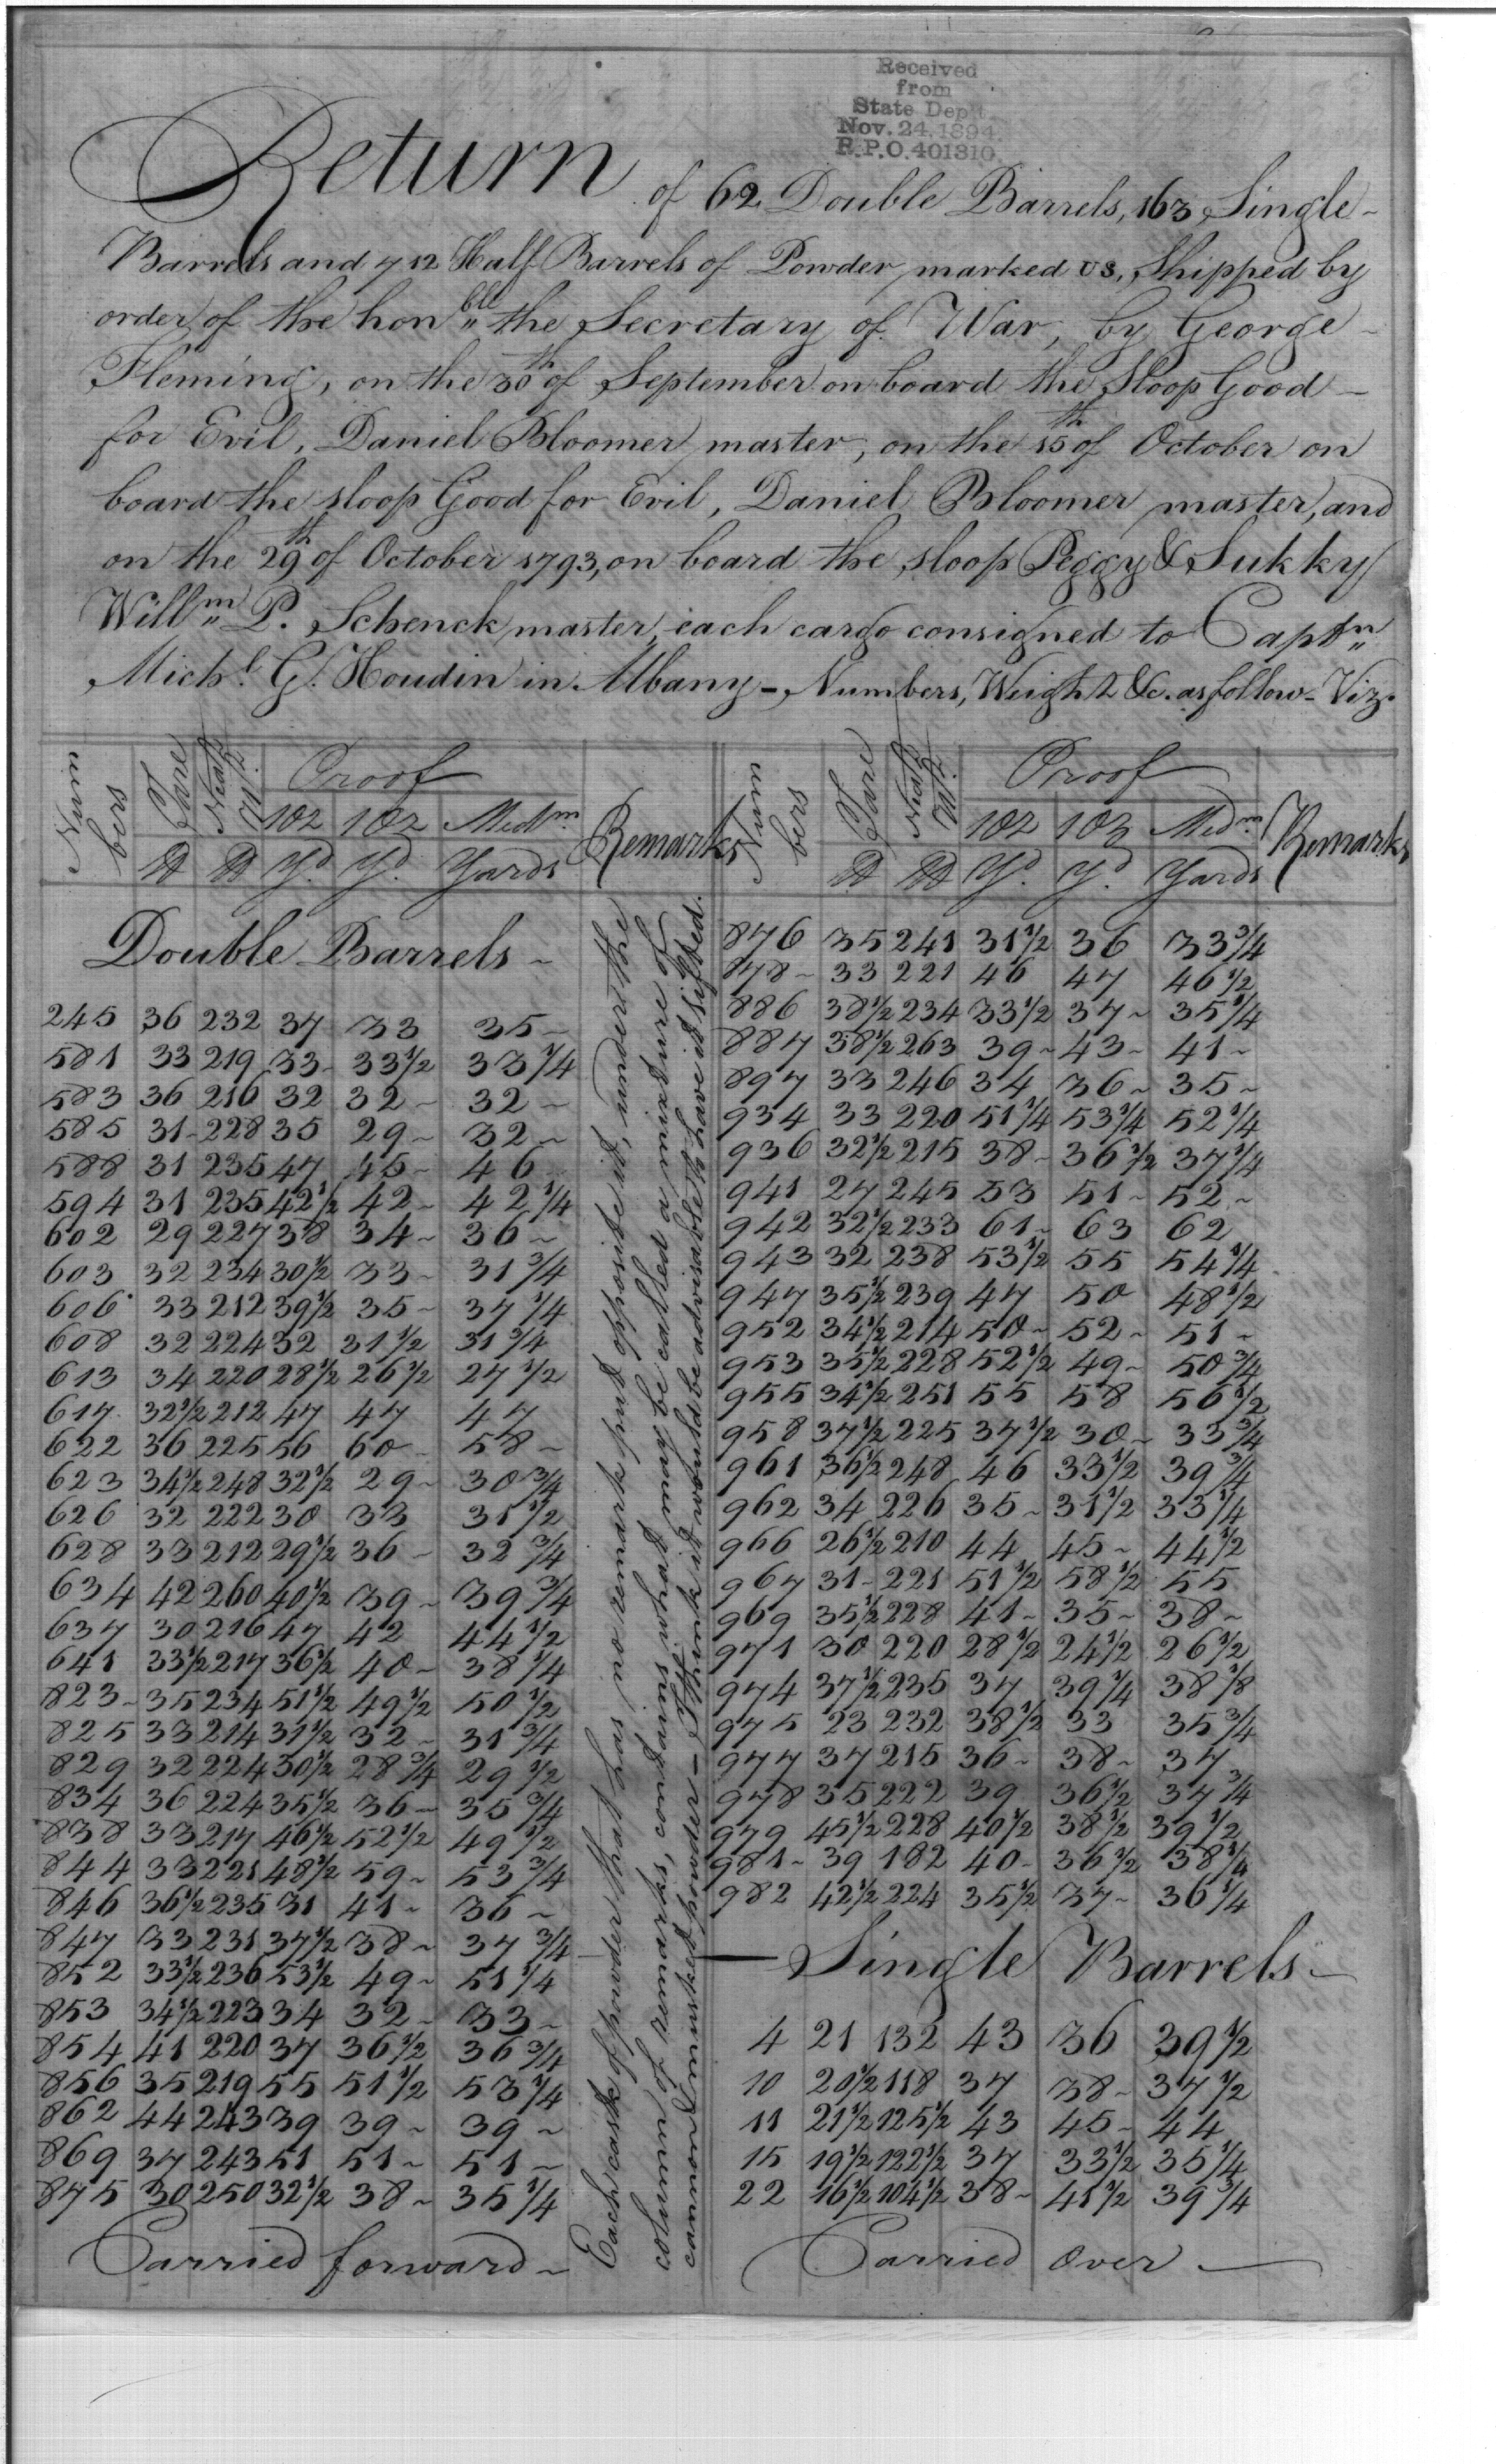 Received
from
State Dept.
Nov. 24. 1894
R.P.O. 401310
Return of 62 Double Barrels, 163 Single
Barrels and 712 Half Barrels of Powder, marked US, Shipped by
order of the hon^ble the Secretary of War, by George
Fleming, on the 30th of September on board the Sloop Good
for Evil, Daniel Bloomer master, on the 15th of October on
board the sloop Good for Evil, Daniel Bloomer master, and
on the 29th of October 1793, on board the sloop Peggy & Sukky
Will^m P. Schenck master, each cargo consigned to Capt^n
Mich^l G. Houdin in Albany - Numbers, Weight &c. as follow - Viz.
Numbers Tare Neat Wt. Proof Remarks
1 oz 1 oz Med^m
lb lb Yd. Yd. Yards
Double Barrels
245 36 232 37 33 35
581 33 219 33 33 1/2 33 1/4
583 36 216 32 32 32
585 31 228 35 29 32
588 31 235 47 45 46
594 31 235 42 1/2 42 42 1/4
602 29 227 38 34 36
603 32 234 30 1/2 33 31 3/4
606 33 212 39 1/2 35 37 1/4
608 32 224 32 31 1/2 31 3/4
613 34 220 28 1/2 26 1/2 27 1/2
617 32 1/2 212 47 47 47
622 36 225 56 60 58
623 34 1/2 248 32 1/2 29 30 3/4
626 32 222 30 33 31 1/2
628 33 212 29 1/2 36 32 3/4
634 42 260 40 1/2 39 39 3/4
637 30 216 47 42 44 1/2
641 33 1/2 217 36 1/2 40 38 1/4
823 35 234 51 1/2 49 1/2 50 1/2
825 33 214 31 1/2 32 31 3/4
829 32 224 30 1/2 28 3/4 29 1/2
834 36 224 35 1/2 36 35 3/4
838 33 217 46 1/2 52 1/2 49 1/2
844 33 221 48 1/2 59 53 3/4
846 36 1/2 235 31 41 36
847 33 231 37 1/2 38 37 3/4
852 33 1/2 236 53 1/2 49 51 1/4
853 34 1/2 223 34 32 33
854 41 220 37 36 1/2 36 3/4
856 35 219 55 51 1/2 53 1/4
862 44 243 39 39 39
869 37 243 51 51 51
875 30 250 32 1/2 38 35 1/4
Carried forward
Each cask of powder that has no remark put opposite it, under the
column of remarks, contains what may be called a mixture of
cannon & musket powder - I think it would be advisable to have it sifted.
Numbers Tare Neat Wt. Proof Remarks
1 oz 1 oz Med^m
lb lb Yd. Yd. Yards
876 35 241 31 1/2 36 33 3/4
878 33 221 46 47 46 1/2
886 38 1/2 234 33 1/2 37 35 1/4
887 38 1/2 263 39 43 41
897 33 246 34 36 35
934 33 220 51 1/4 53 1/4 52 1/4
936 32 1/2 215 38 36 1/2 37 1/4
941 27 245 53 51 52
942 32 1/2 233 61 63 62
943 32 238 53 1/2 55 54 1/4
947 35 1/2 239 47 50 48 1/2
952 34 1/2 214 50 52 51
953 35 1/2 228 52 1/2 49 50 3/4
955 34 1/2 251 55 58 56 1/2
958 37 1/2 225 37 1/2 30 33 3/4
961 36 1/2 248 46 33 1/2 39 3/4
962 34 226 35 31 1/2 33 1/4
966 26 1/2 210 44 45 44 1/2
967 31 221 51 1/2 58 1/2 55
969 35 1/2 228 41 35 38
971 30 220 28 1/2 24 1/2 26 1/2
974 37 1/2 235 37 39 1/4 38 1/8
975 23 232 38 1/2 33 35 3/4
977 37 215 36 38 37
978 35 222 39 36 1/2 37 3/4
979 45 1/2 228 40 1/2 38 1/2 39 1/2
981 39 182 40 36 1/2 38 1/4
982 42 1/2 224 35 1/2 37 36 1/4
Single Barrels
4 21 132 43 36 39 1/2
10 20 1/2 118 37 38 37 1/2
11 21 1/2 125 1/2 43 45 44
15 19 1/2 122 1/2 37 33 1/2 35 1/4
22 16 1/2 104 1/2 38 41 1/2 39 3/4
Carried Over